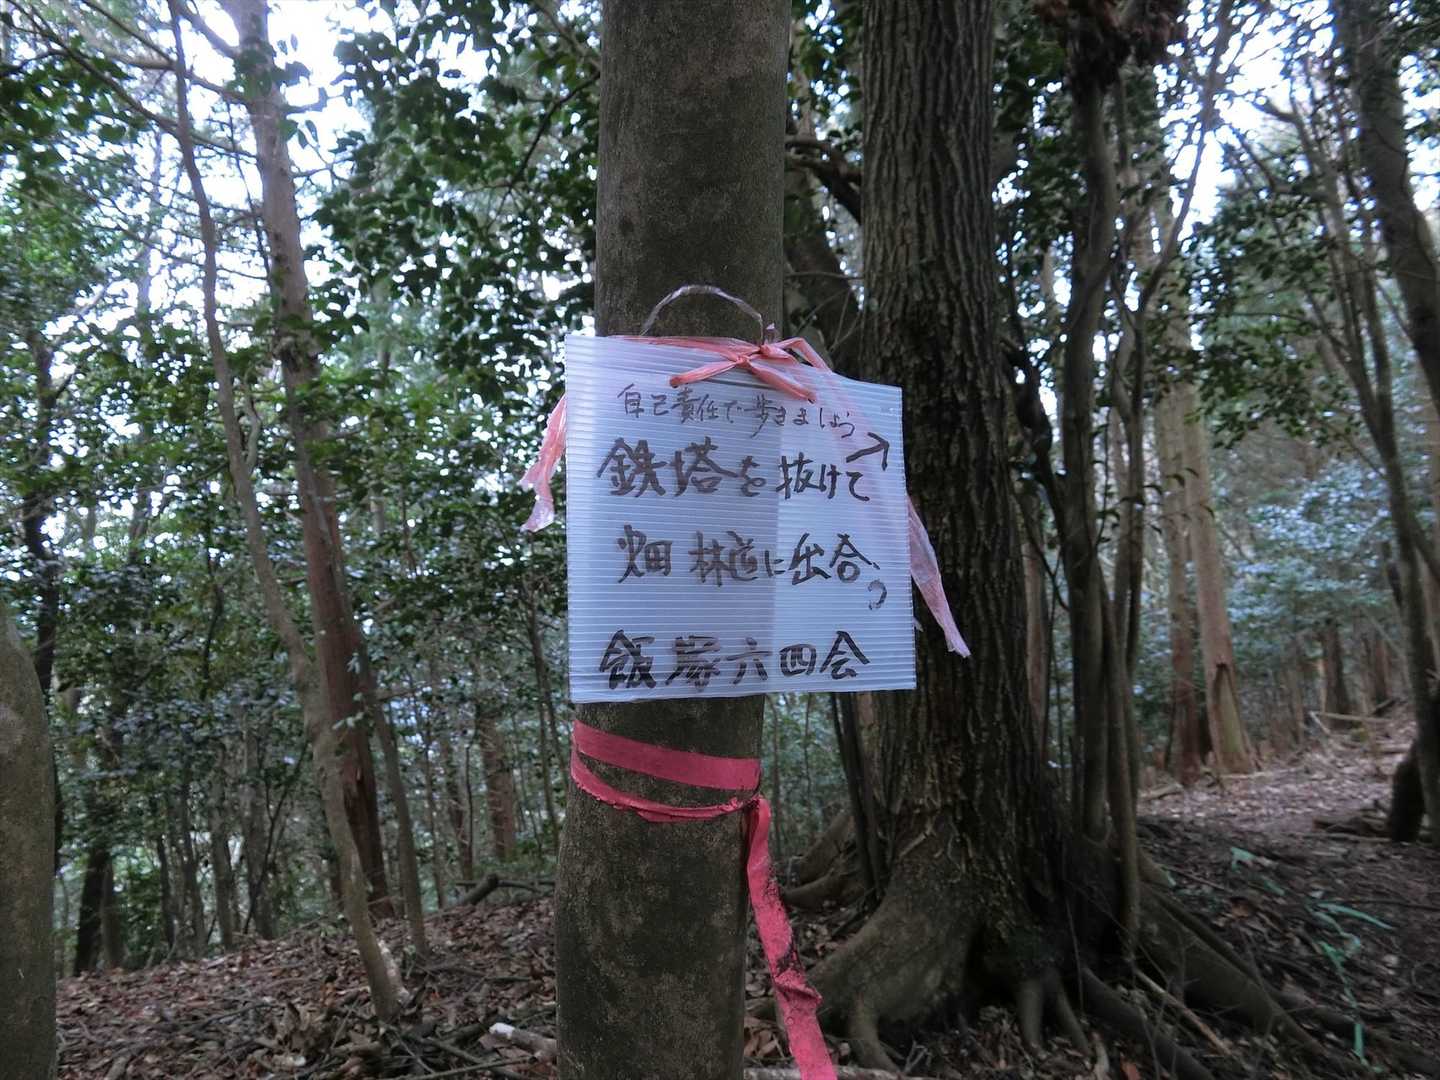 自己責任で歩きましょう
鉄塔を抜けて
畑林道に出合
う
飯塚六四会